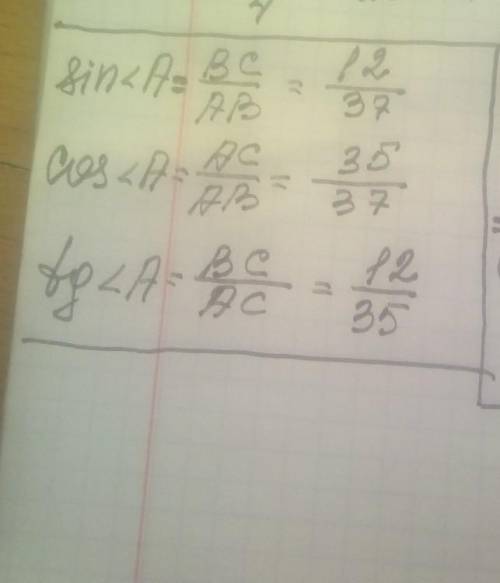 sin<A = BC/AB = 12/37
cos<A = AC/AB = 35/37
tg<A = BC/AC = 12/35